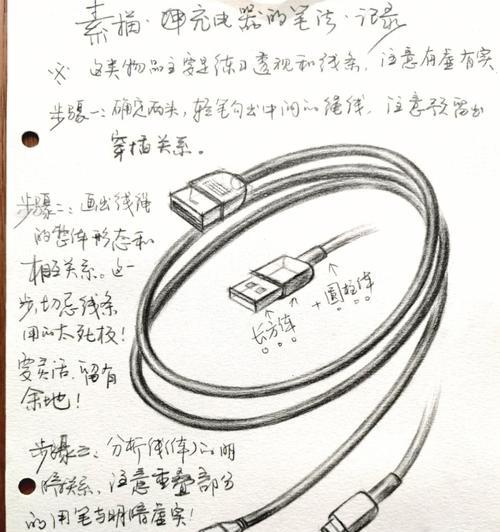 素描·充电器的笔法·记录
※ 这类物品主要是练习透视和线条，注意有虚有实
步骤一：确定两头，轻笔勾出中间的绳线，注意预留出
穿插关系。
步骤二：画出线绳
的整体形态和
相互关系。这一
步，切忌线条
用的太死板！
要灵活，留有
余地！
长方体
+圆柱体
步骤三：分析线(体)的明
暗关系，注意重叠部分
的用笔与明暗虚实！